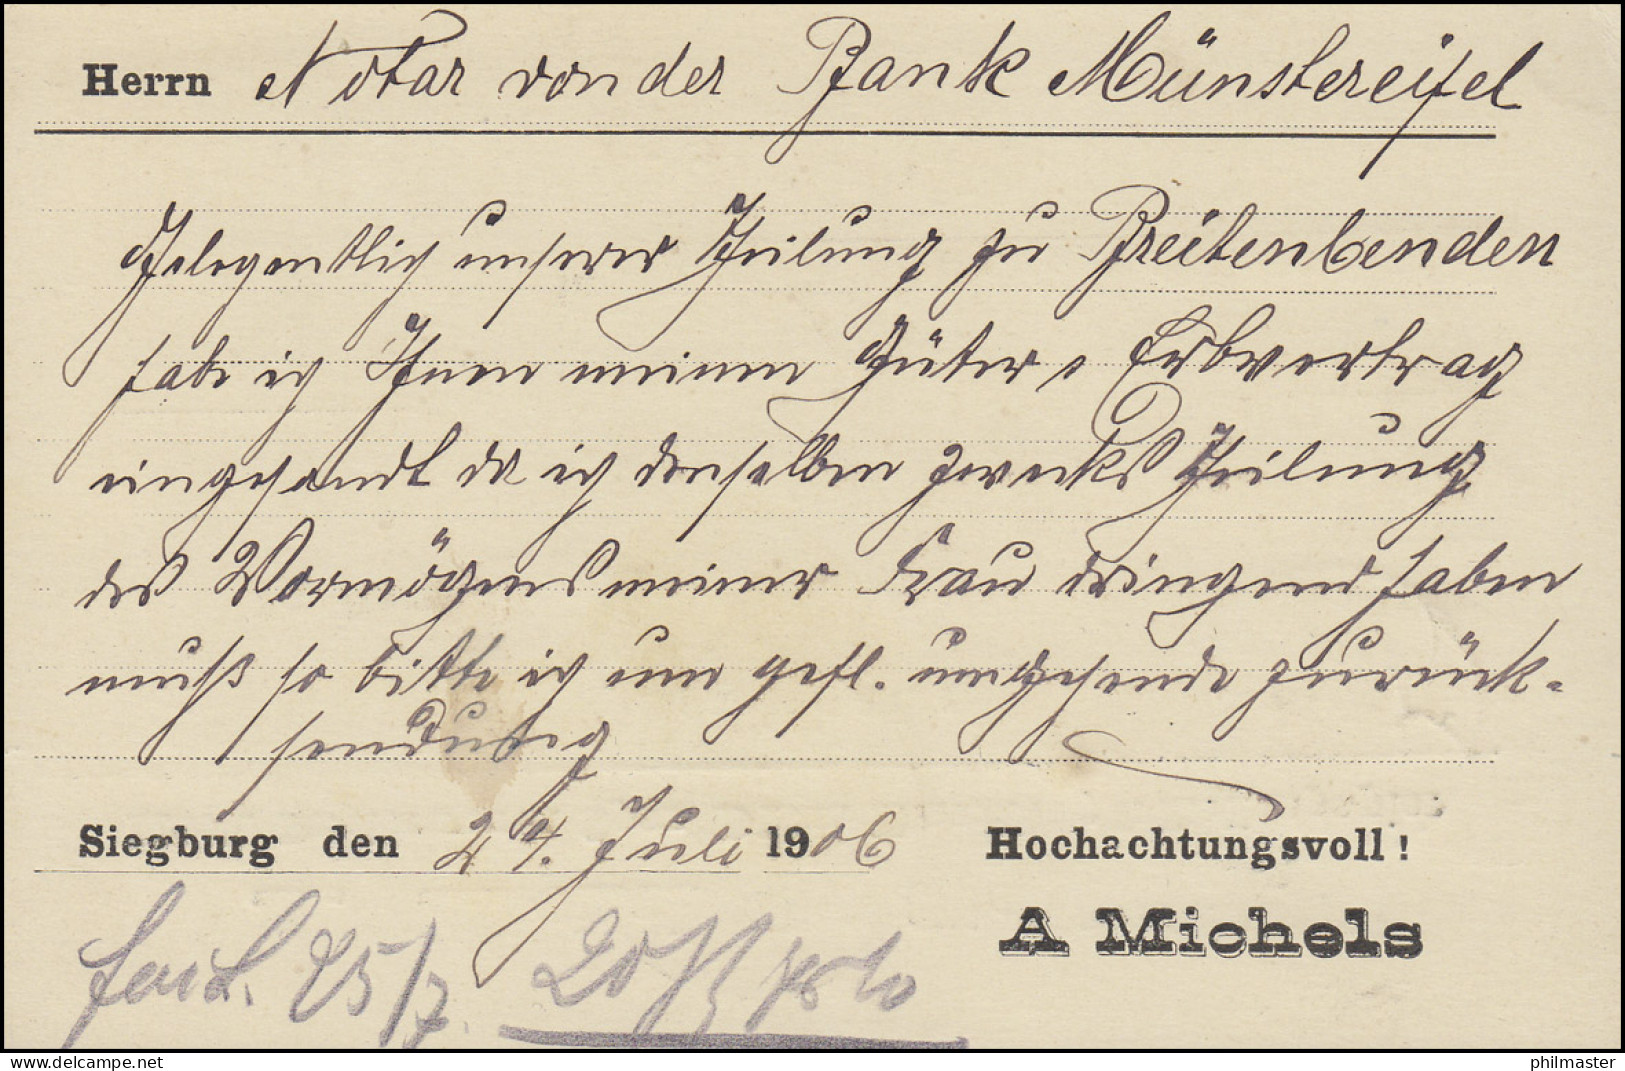 Herrn Notar von der Bank Münstereifel
Gelegentlich unserer Theilung zu Breitenbenden
habe ich Ihnen meinen Güter u Erbvertrag
eingesandt da ich denselben zwecks Theilung
des Vermögens meiner Frau dringend haben
muß so bitte ich um gefl. umgehende zurück-
sendung
Siegburg den 24. Juli 1906 Hochachtungsvoll!
A Michels
25/7. 20
delcampe.net
philmaster